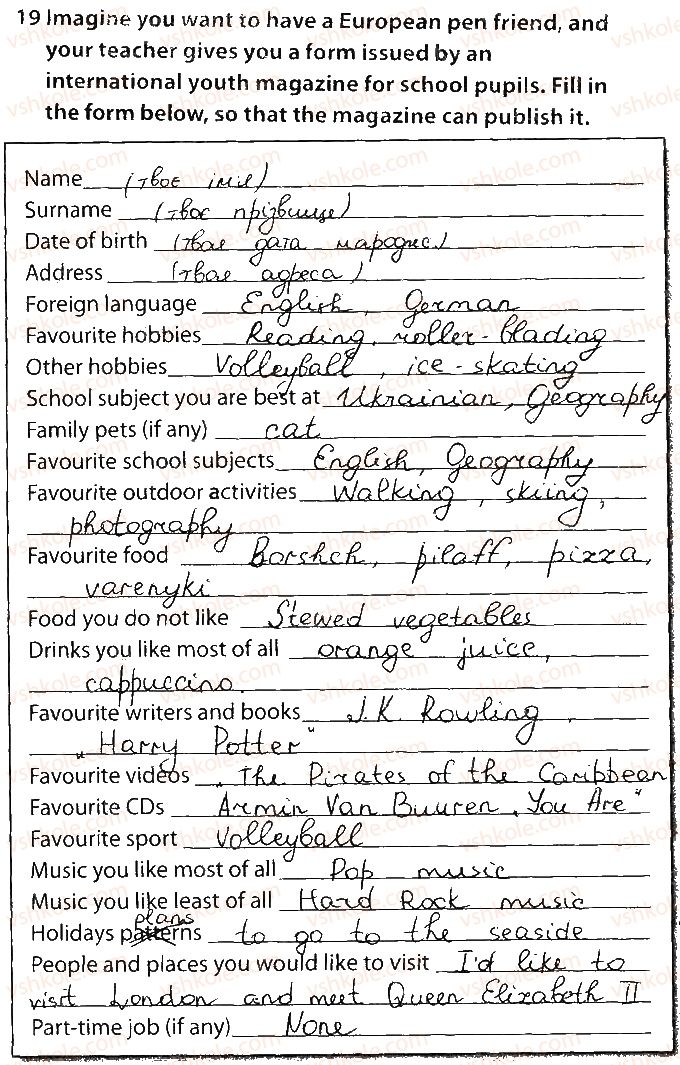 19 Imagine you want to have a European pen friend, and
your teacher gives you a form issued by an
international youth magazine for school pupils. Fill in
the form below, so that the magazine can publish it.
Name (твоє ім'я)
Surname (твоє прізвище)
Date of birth (твоя дата народження)
Address (твоя адреса)
Foreign language English, German
Favourite hobbies Reading, roller-blading
Other hobbies Volleyball, ice-skating
School subject you are best at Ukrainian, Geography
Family pets (if any) cat
Favourite school subjects English, Geography
Favourite outdoor activities Walking, skiing,
photography
Favourite food Borshch, pilaff, pizza,
varenyki
Food you do not like Stewed vegetables
Drinks you like most of all orange juice,
cappuccino.
Favourite writers and books J.K. Rowling,
„Harry Potter"
Favourite videos „The Pirates of the Caribbean
Favourite CDs Armin Van Buuren „You Are"
Favourite sport Volleyball
Music you like most of all Pop music
Music you like least of all Hard Rock music
plans
Holidays patterns to go to the seaside
People and places you would like to visit I'd like to
visit London and meet Queen Elizabeth II
Part-time job (if any) None
vshkole.com